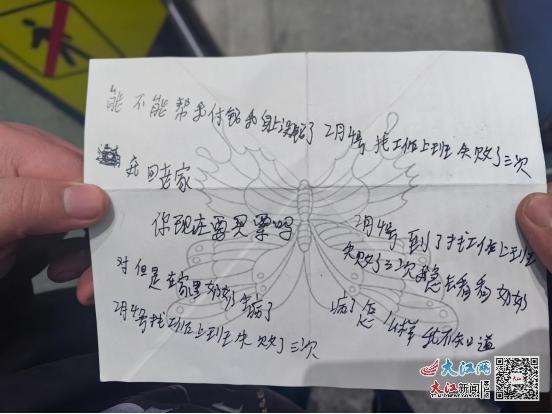 能 不能 帮我付钱我身上没钱了 2月4号 找工作上班 失败了三次
在回老家
你现在要见票吗
2月4号 到了找工作上班
失败了三次 着急 去看看奶奶
对 但是 老家里奶奶生病了
病了 怎么样 我不知道
2月4号找工作上班 失败了三次
大江网
大江新闻